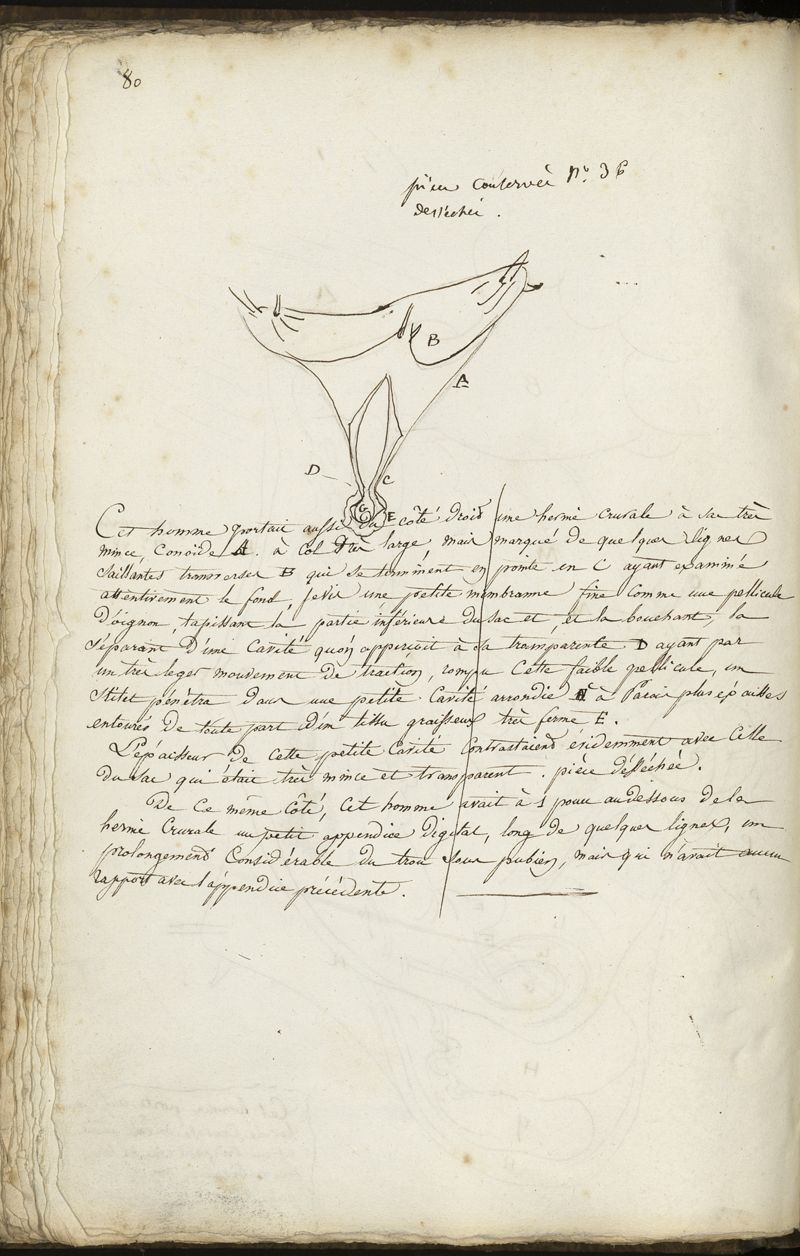 80
pièce conservée N.º 36
desséchée.
B
A
D
C
G
E
Cet homme portait aussi du côté droit une hernie crurale à sac très
mince, conoide A. à col très large, mais marqué de quelques lignes
saillantes transverses B qui se terminent en pointe en C ayant examiné
attentivement le fond, je vis une petite membranne fine comme une pellicule
d'oignon, tapissant la partie inférieure du sac et, et la bouchant, la
séparant d'une cavité qu'on appercoit à sa transparente D ayant par
un très leger mouvement de traction, rompu cette faible pellicule, un
stilet pénétra dans une petite cavité arrondie à Paroir plus épaisses
entourés de toute part d'un tissu graisseux très ferme E.
L'épaisseur de cette petite cavité contrastaient évidemment avec celle
du sac qui était très mince et transparent. pièce désséchée.
De ce même côté, cet homme avait à 1 pouce audessous de la
hernie crurale un petit appendice digital, long de quelques lignes, un
prolongement considérable du trou sous pubien, mais qui n'avait aucun
rapport avec l'appendice précédente.